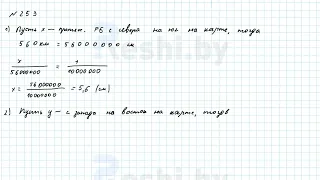 N253
1) Пусть x — протяж. РБ с севера на юг на карте, тогда
560 км = 56000000 см
x / 56000000 = 1 / 10000000
x = 56000000 / 10000000 = 5,6 (см)
2) Пусть y — с запада на восток на карте, тогда
Reshi.by